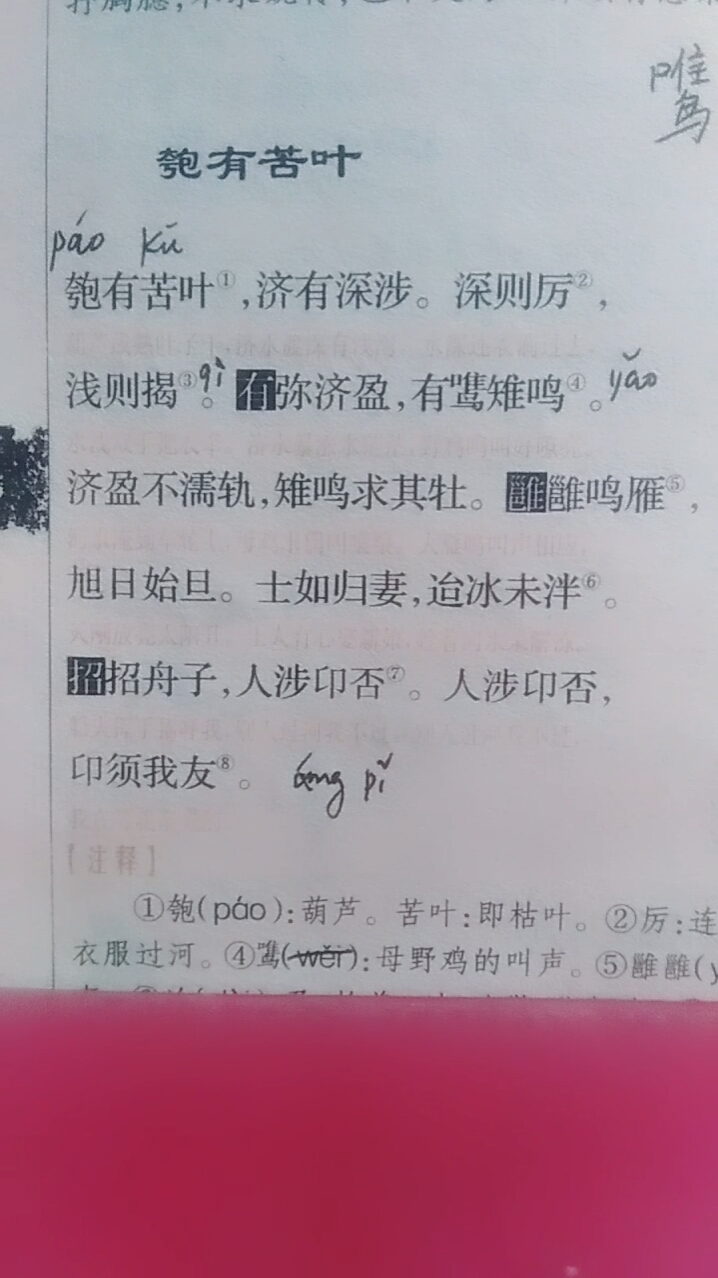 唯鸟
匏有苦叶
páo kū
匏有苦叶①，济有深涉。深则厉②，
浅则揭③。qì 有弥济盈，有鷕雉鸣④。yǎo
济盈不濡轨，雉鸣求其牡。雝雝鸣雁⑤，
旭日始旦。士如归妻，迨冰未泮⑥。
招招舟子，人涉卬否⑦。人涉卬否，
卬须我友⑧。áng pǐ
【注释】
①匏(páo)：葫芦。苦叶：即枯叶。②厉：连
衣服过河。④鷕(wěi)：母野鸡的叫声。⑤雝雝(y